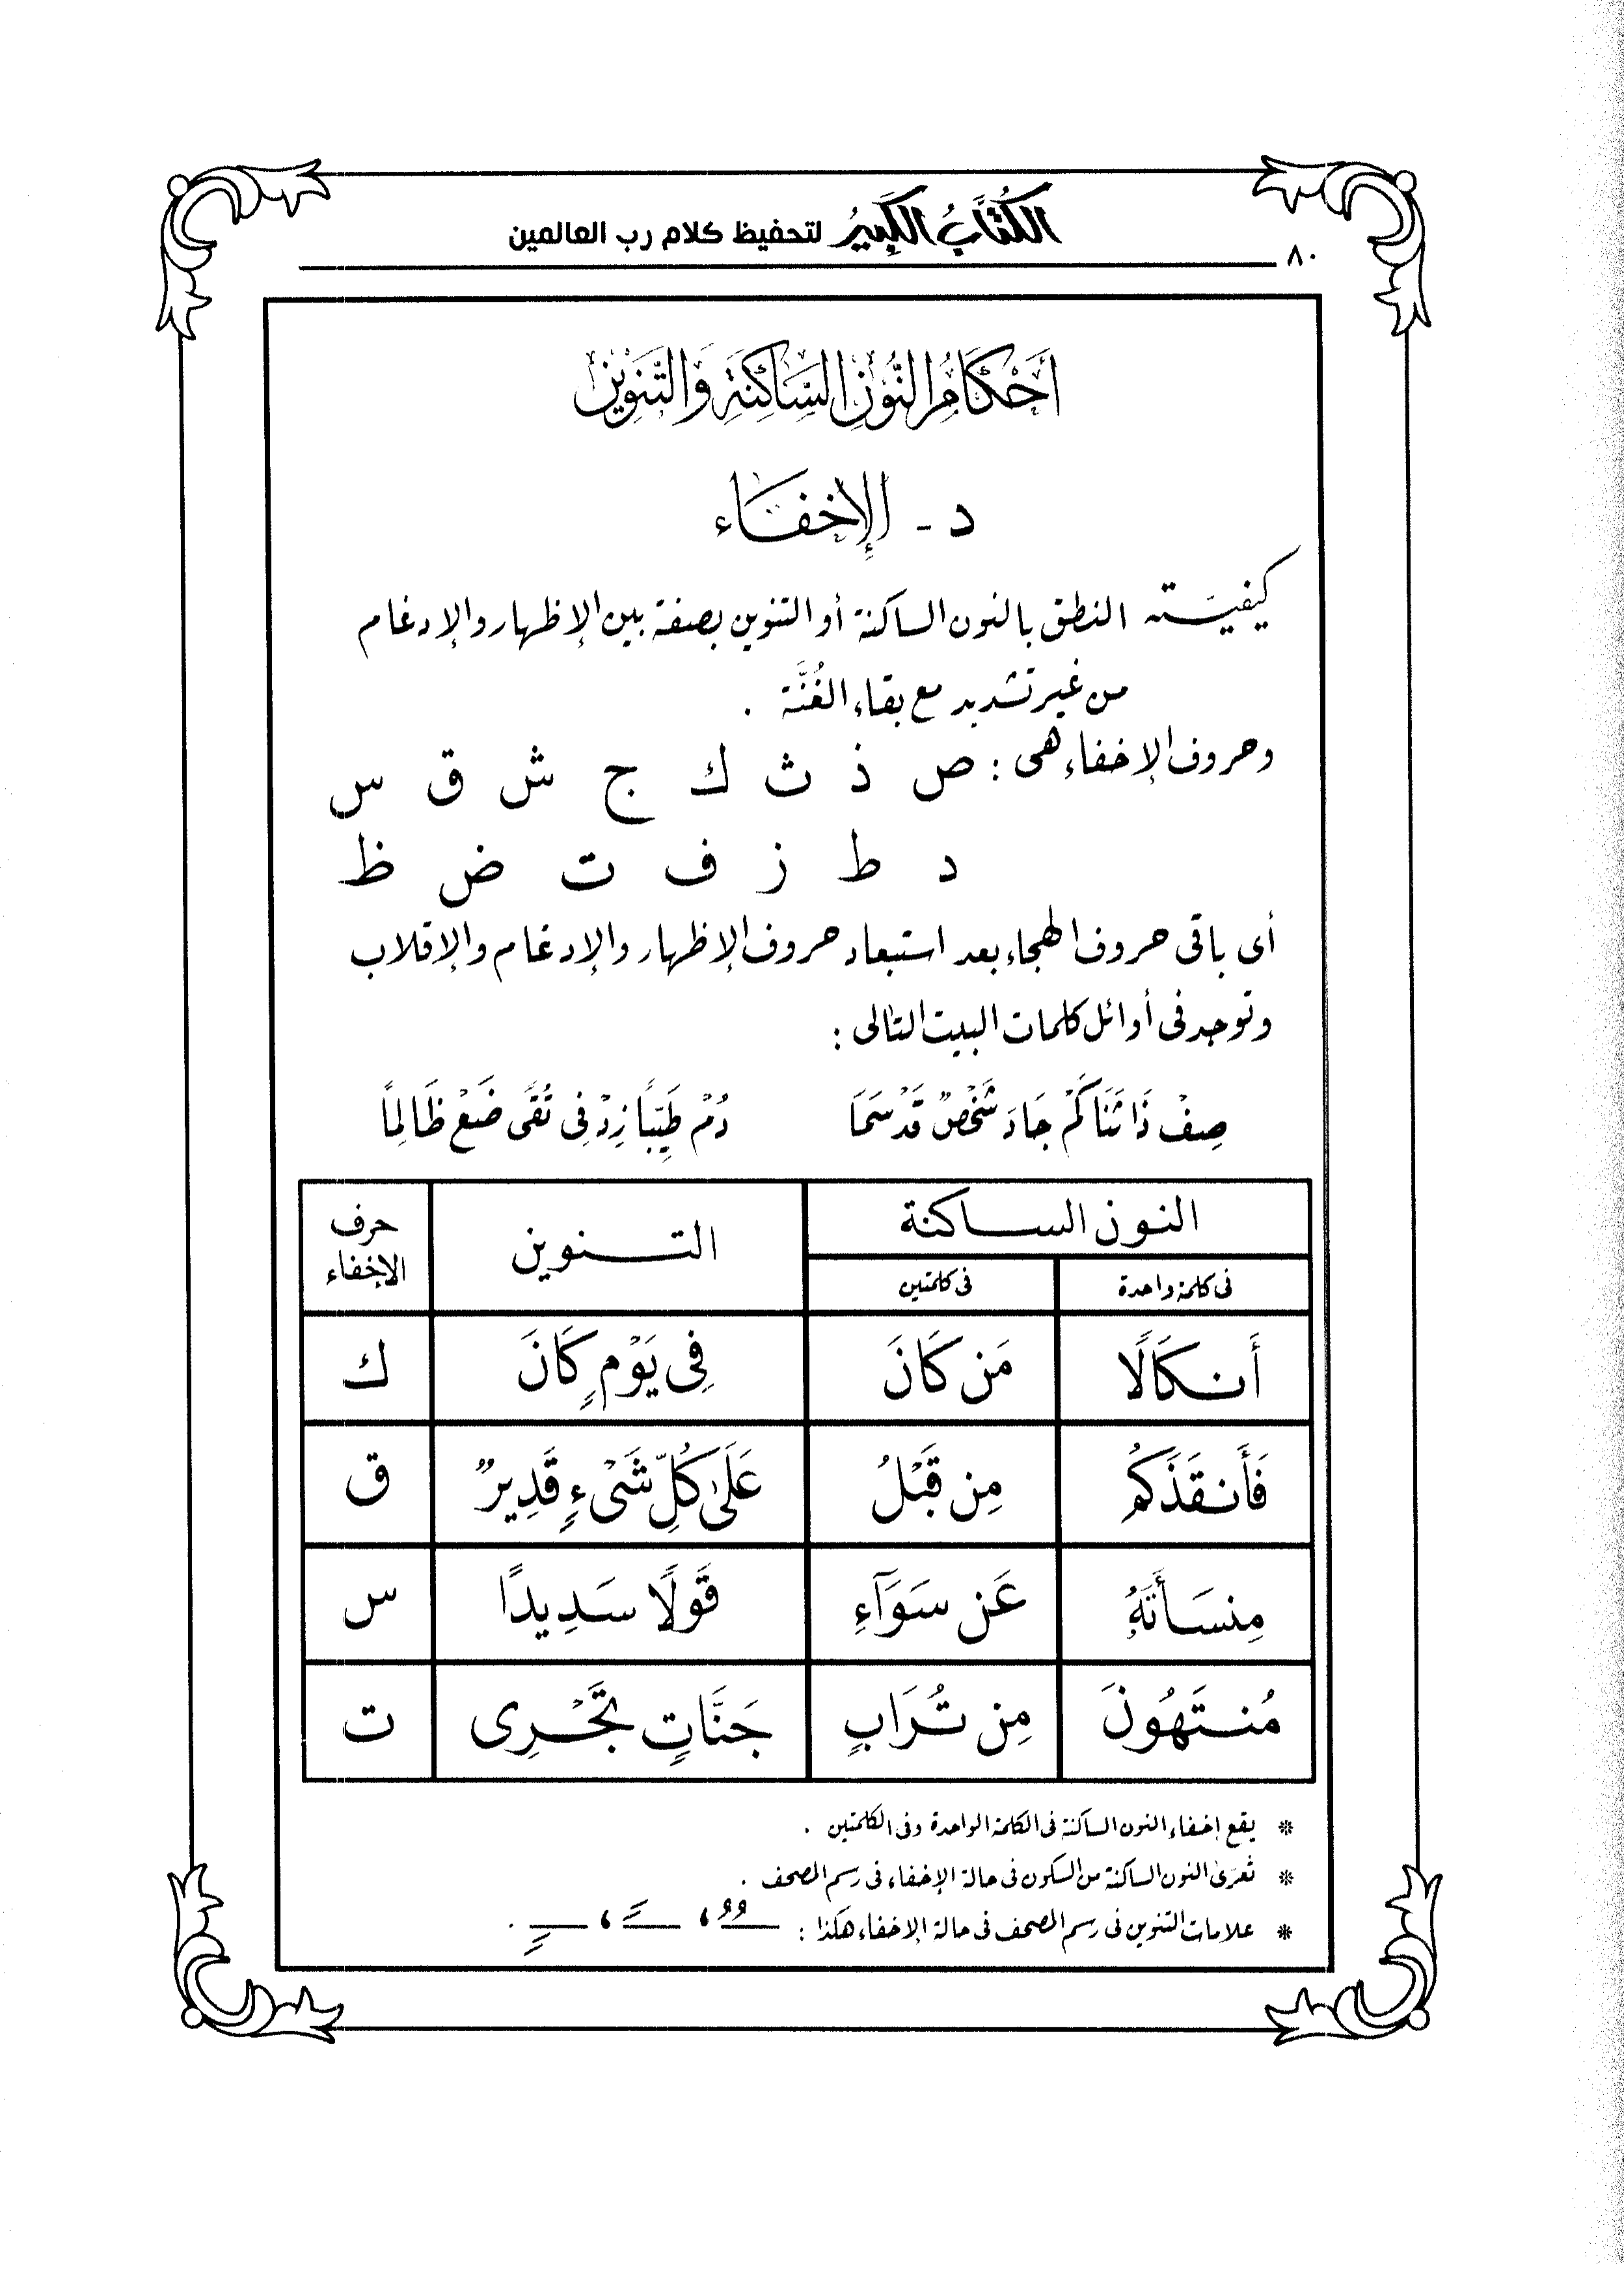 ٨٠
الكُتَّابُ الكَبِيرُ لتحفيظ كلام رب العالمين
أَحْكَامُ النُّونِ السَّاكِنَةِ وَالتَّنْوِينِ
د - الإِخفَاء
كيفيته النطق بالنون الساكنة أو التنوين بصفة بين الإظهار والإدغام
من غير تشديد مع بقاء الغُنَّة .
وحروف الإخفاء هى : ص ذ ث ك ج ش ق س
د ط ز ف ت ض ظ
أى باقى حروف الهجاء بعد استبعاد حروف الإظهار والإدغام والإقلاب
وتوجد فى أوائل كلمات البيت التالى :
صِفْ ذَا ثَنَا كَمْ جَادَ شَخْصٌ قَدْ سَمَا دُمْ طَيِّبًا زِدْ فِى تُقًى ضَعْ ظَالِمًا
النون الساكنة التنوين حرف الإخفاء
فى كلمة واحدة فى كلمتين
أَنكَالًا مَن كَانَ فِى يَوْمٍ كَانَ ك
فَأَنقَذَكُم مِن قَبْلُ عَلَىٰ كُلِّ شَىْءٍ قَدِيرٌ ق
مِنسَأَتَهُ عَن سَوَآءِ قَوْلًا سَدِيدًا س
مُنتَهُونَ مِن تُرَابٍ جَنَّاتٍ تَجْرِى ت
* يقع إخفاء النون الساكنة فى الكلمة الواحدة وفى الكلمتين .
* تُعَرَّىٰ النون الساكنة من السكون فى حالة الإخفاء فى رسم المصحف .
* علامات التنوين فى رسم المصحف فى حالة الإخفاء هكذا : ـٌ ، ـً ، ـٍ .